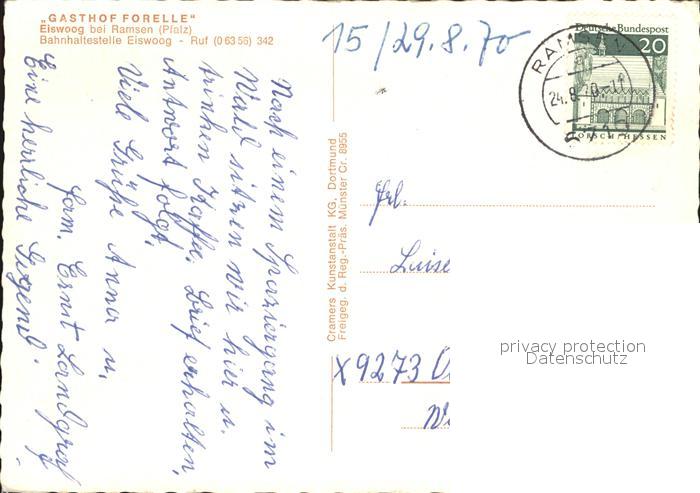 „GASTHOF FORELLE“
Eiswoog bei Ramsen (Pfalz)
Bahnhaltestelle Eiswoog - Ruf (0 63 56) 342
15/29.8.70
Nach einem Spaziergang im
Wald sitzen wir hier u.
trinken Kaffee. Brief erhalten,
Antwort folgt.
Viele Grüße Anna u.
Fam. Ernst Landgraf
Eine herrliche Gegend.
Cramers Kunstanstalt KG, Dortmund
Freigeg. d. Reg.-Präs. Münster Cr. 8955
Deutsche Bundespost
20
LORSCH/HESSEN
RAMSEN
24.8.70
6719
Frl.
Luise
X9273
privacy protection
Datenschutz